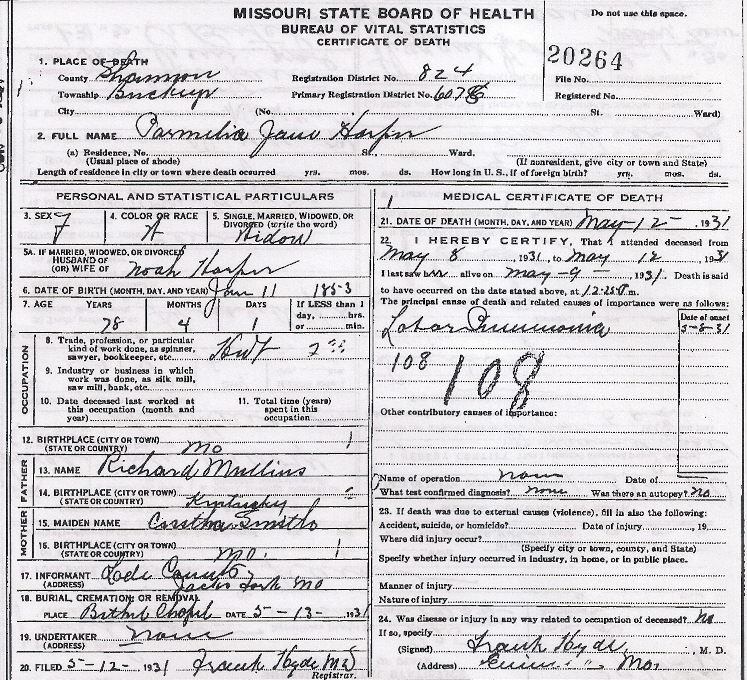 MISSOURI STATE BOARD OF HEALTH
BUREAU OF VITAL STATISTICS
CERTIFICATE OF DEATH
Do not use this space.
20264
1. PLACE OF DEATH
County Shannon Registration District No. 824 File No.
Township Primary Registration District No. Registered No.
City (No. St. Ward)
2. FULL NAME Parmelia Jane Harper
(a) Residence, No. St. Ward.
(Usual place of abode) (If nonresident, give city or town and State)
Length of residence in city or town where death occurred yrs. mos. ds. How long in U. S., if of foreign birth? yrs. mos. ds.
PERSONAL AND STATISTICAL PARTICULARS
3. SEX 4. COLOR OR RACE 5. SINGLE, MARRIED, WIDOWED, OR
DIVORCED (write the word)
F W Widow
5A. IF MARRIED, WIDOWED, OR DIVORCED
HUSBAND OF
(OR) WIFE OF Noah Harper
6. DATE OF BIRTH (MONTH, DAY, AND YEAR) Jan 11 1853
7. AGE YEARS MONTHS DAYS If LESS than 1
day, hrs.
or min.
78 4 1
OCCUPATION
8. Trade, profession, or particular
kind of work done, as spinner,
sawyer, bookkeeper, etc.
9. Industry or business in which
work was done, as silk mill,
saw mill, bank, etc.
10. Date deceased last worked at
this occupation (month and
year)
11. Total time (years)
spent in this
occupation
12. BIRTHPLACE (CITY OR TOWN)
(STATE OR COUNTRY) Mo
FATHER
13. NAME Richard Mullins
14. BIRTHPLACE (CITY OR TOWN)
(STATE OR COUNTRY) Kentucky
MOTHER
15. MAIDEN NAME Smith
16. BIRTHPLACE (CITY OR TOWN)
(STATE OR COUNTRY) Mo.
17. INFORMANT
(ADDRESS) Jacks Fork Mo
18. BURIAL, CREMATION, OR REMOVAL
PLACE DATE 5-13- 1931
19. UNDERTAKER none
(ADDRESS)
20. FILED 5-12- 1931 Frank Hyde MD
Registrar.
MEDICAL CERTIFICATE OF DEATH
21. DATE OF DEATH (MONTH, DAY, AND YEAR) May-12- 1931
22. I HEREBY CERTIFY, That I attended deceased from
May 8, 1931, to May 12, 1931
I last saw h alive on May-9-, 1931. Death is said
to have occurred on the date stated above, at m.
The principal cause of death and related causes of importance were as follows:
Date of onset
Lobar Pneumonia 5-8-31
108
108
Other contributory causes of importance:
Name of operation none Date of
What test confirmed diagnosis? none Was there an autopsy? no
23. If death was due to external causes (violence), fill in also the following:
Accident, suicide, or homicide? Date of injury , 19
Where did injury occur?
(Specify city or town, county, and State)
Specify whether injury occurred in industry, in home, or in public place.
Manner of injury
Nature of injury
24. Was disease or injury in any way related to occupation of deceased? no
If so, specify
(Signed) Frank Hyde, M. D.
(Address) Mo.